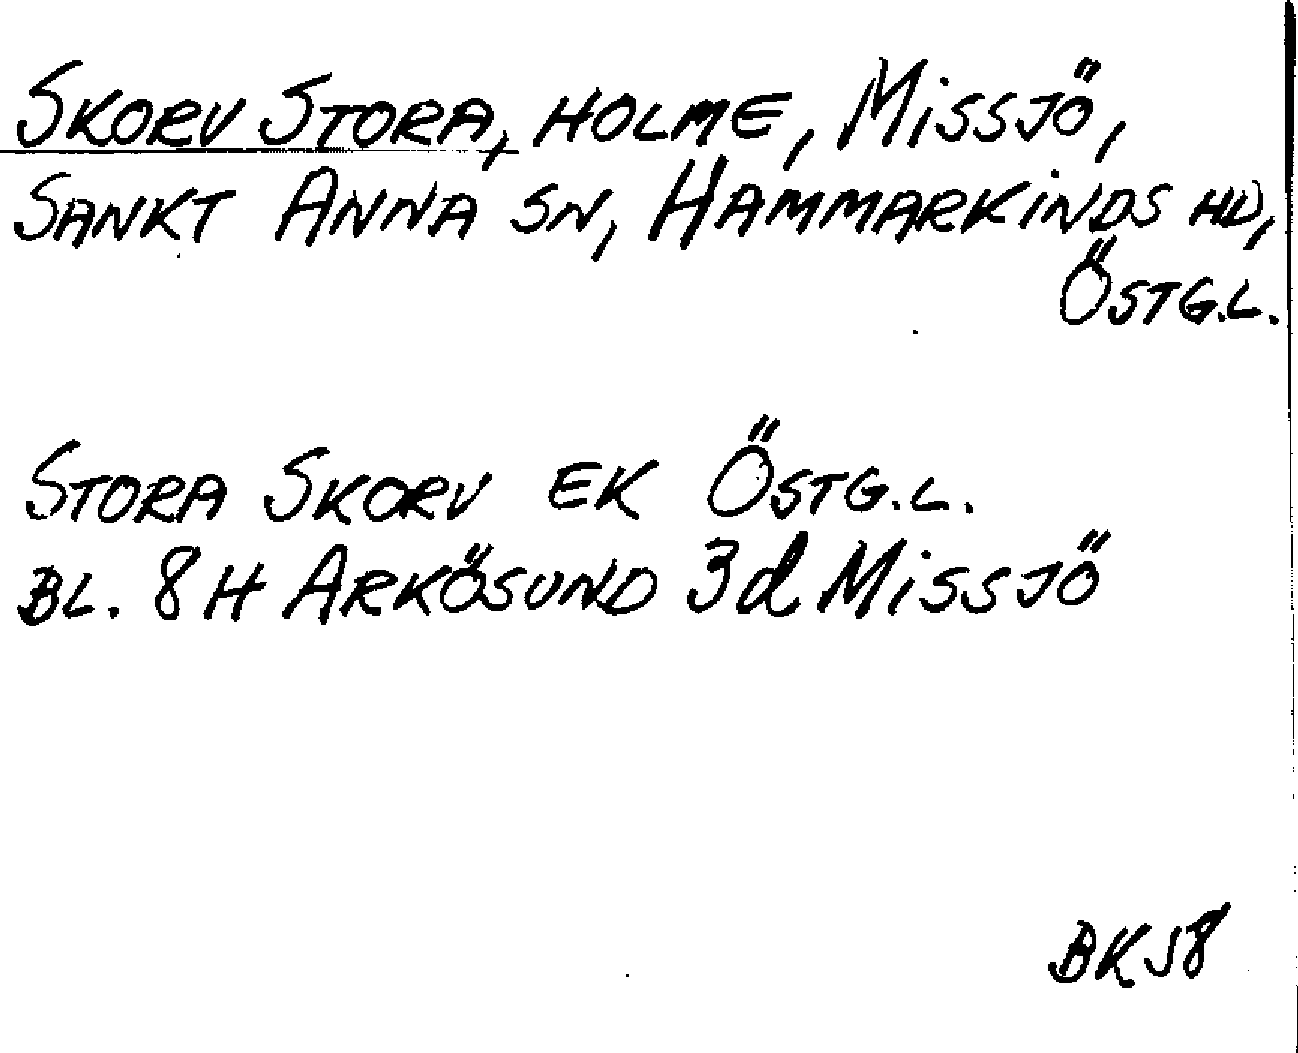 SKORV STORA, HOLME, MISSJÖ,
SANKT ANNA SN, HAMMARKINDS HD,
ÖSTG.L.
STORA SKORV EK ÖSTG.L.
BL. 8H ARKÖSUND 3d MISSJÖ
BK58